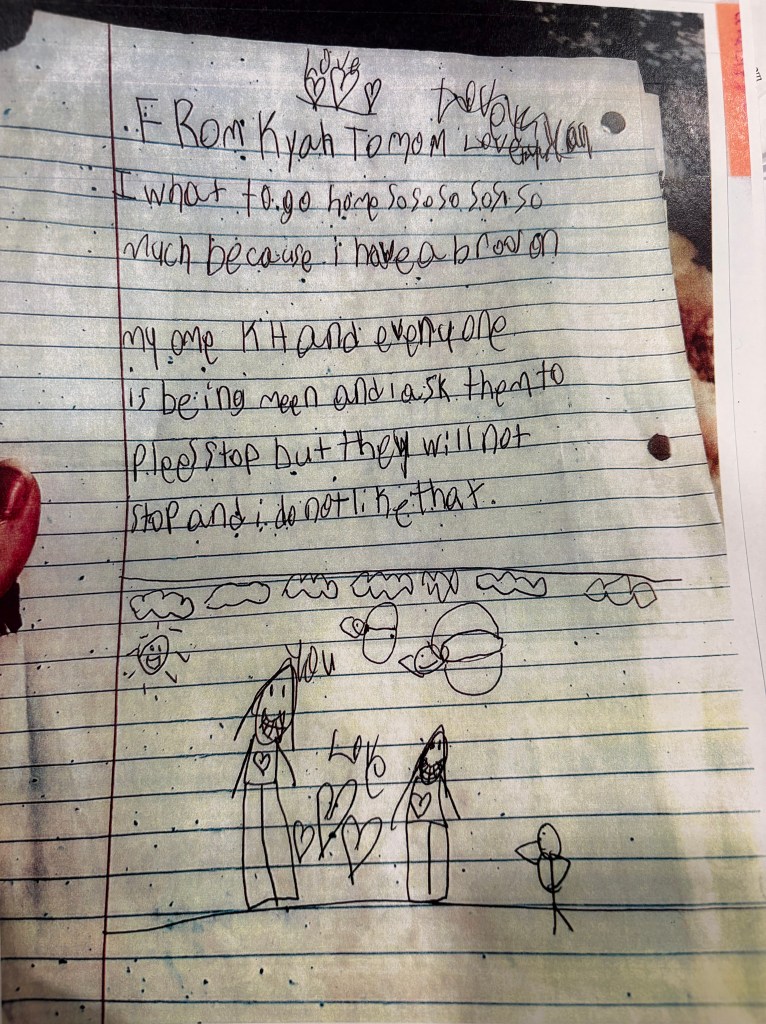 Love
FROM Kyah To mom Love
I what to go home so so so so so so
much because i have a broos on
my ome KH and everyone
is being meen and i ask them to
plees stop but they will not
stop and i do not like that.
You
Love